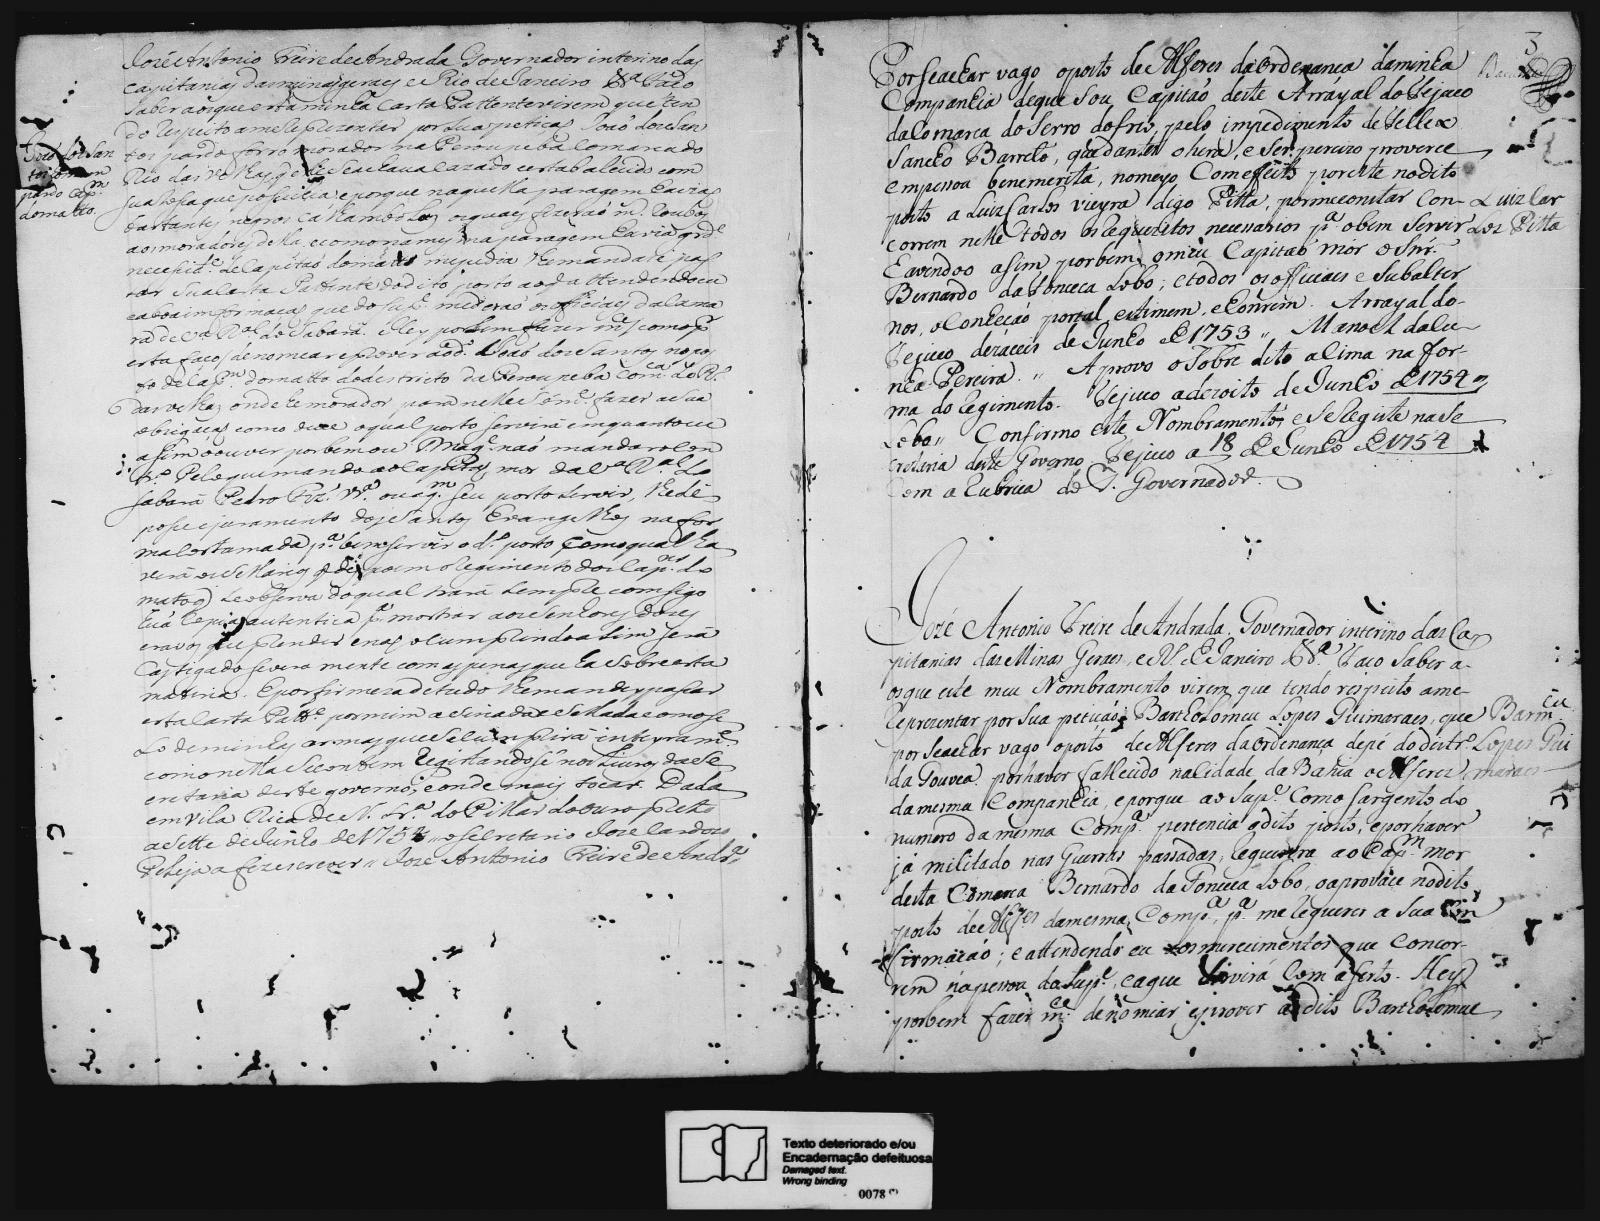 Jozé Antonio Freire de Andrada Governador interino das
capitanias das minas geraes e Rio de Janeiro &ª Faço
saber aos que esta minha Carta Pattente virem que ten
do respeito ame reprezentar por sua petiçaõ Joaõ dos San
tos pardo forro morador na Peroupeba comarca do
Rio das Velhas, q̃ elle se achava cazado e estabalecido com
sua
bastantes negros
aos moradores della, e como
necessid.e de Capitaõ do mato me pedia lhe mandace pas
sar sua Carta Pattente do dito posto ao q̃ attendendo eu
e a boa informaçaõ que do sup.e me deraõ os officiaes da cama
ra de V.ª R.al do Sabará. Hey por bem fazer m.ce como p.r
esta faço de nomear e prover ao d.º Joaõ dos Santos no pos
to de Cap.m do matto do destricto da Peroupeba Com.ca do R.º
das velhas, onde he morador para nelle fazer a sua
obrigaçaõ como deve o qual posto servirá em quanto eu
assim o ouver por bem ou S. Mag.e naõ mandar o con
tr.º Pelo que mando ao Capitaõ mor da V.ª R.al do
Sabará Pedro
posse e juramento dos Santos Evangelhos na for
ma costumada p.ª bem servir o d.º posto com o qual ha
verá os
mato q̃ se observa do qual trará sempre comsigo
huã Copia autentica p.ª mostrar aos senhores dos es
cravos que prender e naõ o cumprindo assim será
castigado severa mente com as penas que ha sobre esta
materia. E por firmeza de tudo lhe mandey passar
esta Carta Patt.e por mim assinada e sellada com o se
lo de minhas armas que se cumprirá inteyram.te
como nella se contem registandose nos Livros da Se
cretaria deste governo, e onde mais tocar. Dada
em Vila Rica de N. Sr.ª do Pillar do ouro preto
a sette de Junho de 1754 o secretario Joze Cardozo
Peleja a fez escrever // Jozé Antonio Freire de Andr.ª
Joaõ dos San
tos
pardo Cap.m
do matto.
3
Por se achar vago o posto de Alferes da Ordenança da minha
Companhia de que sou Capitaõ deste Arrayal do Tejuco
da Comarca do Serro do frio, pelo impedimento de Felix
Sancho Barreto, que dantes o hera, e ser percizo proverce
em pessoa benemerita, nomeyo Com effeito por este no dito
posto a Luiz Carlos vieyra digo Pitta, por me constar con-
correm nelle todos os requezitos necessarios p.ª o bem servir
havendo o assim por bem o meu Capitaõ mor o Snr.
Bernardo da Fonceca Lobo; e todos os officiaes e Subalter
nos, o Conheçaõ por tal, estimem, e honrem. Arrayal do
Tejuco dezaceis de Junho de 1753 // Manoel da Cu-
nha Pereira. // Aprovo o Sobre dito a sima na for-
ma do Regimento. Tejuco a dezoito de Junho de 1754 //
Lobo // Confirmo este Nombramento, e Se Registe na Se
cretaria deste Governo, Tejuco a 18 de Junho de 1754
Com a Rubrica do S. Governador.
Luiz Car
Los Pitta
Jozé Antonio Freire de Andrada. Governador interino das Ca
pitanias das Minas Geraes, e R.º de Janeiro &ª. Faço Saber a-
os que este meu Nombramento virem, que tendo respeito ame
reprezentar por sua petiçaõ Bartholomeu Lopes Guimaraes, que
por se achar vago o posto de Alferes da Ordenança de pé do destr.º
da Gouvea por haver fallecido na Cidade da Bahia o Alferes
da mesma Companhia, e porque ao Sup.e Como Sargento do
numero da mesma Comp.ª pertencia o dito posto, e por haver
já militado nas Guerras passadas, requerera ao Cap.m mor
desta Comarca Bernardo da Fonceca Lobo, o aprováce no dito
posto de Alf.es da mesma Comp.ª, p.ª me requerer a Sua Con
firmaçaõ; e attendendo eu aos merecimentos que concor-
rem na pessoa do Sup.e, e a que servirá Com aserto. Hey
por bem fazer m.ce de nomear e prover ao dito Bartholomeu
Barm.eu
Lopes Gui
maraes
Texto deteriorado e/ou
Encadernação defeituosa
Damaged text.
Wrong binding
0078